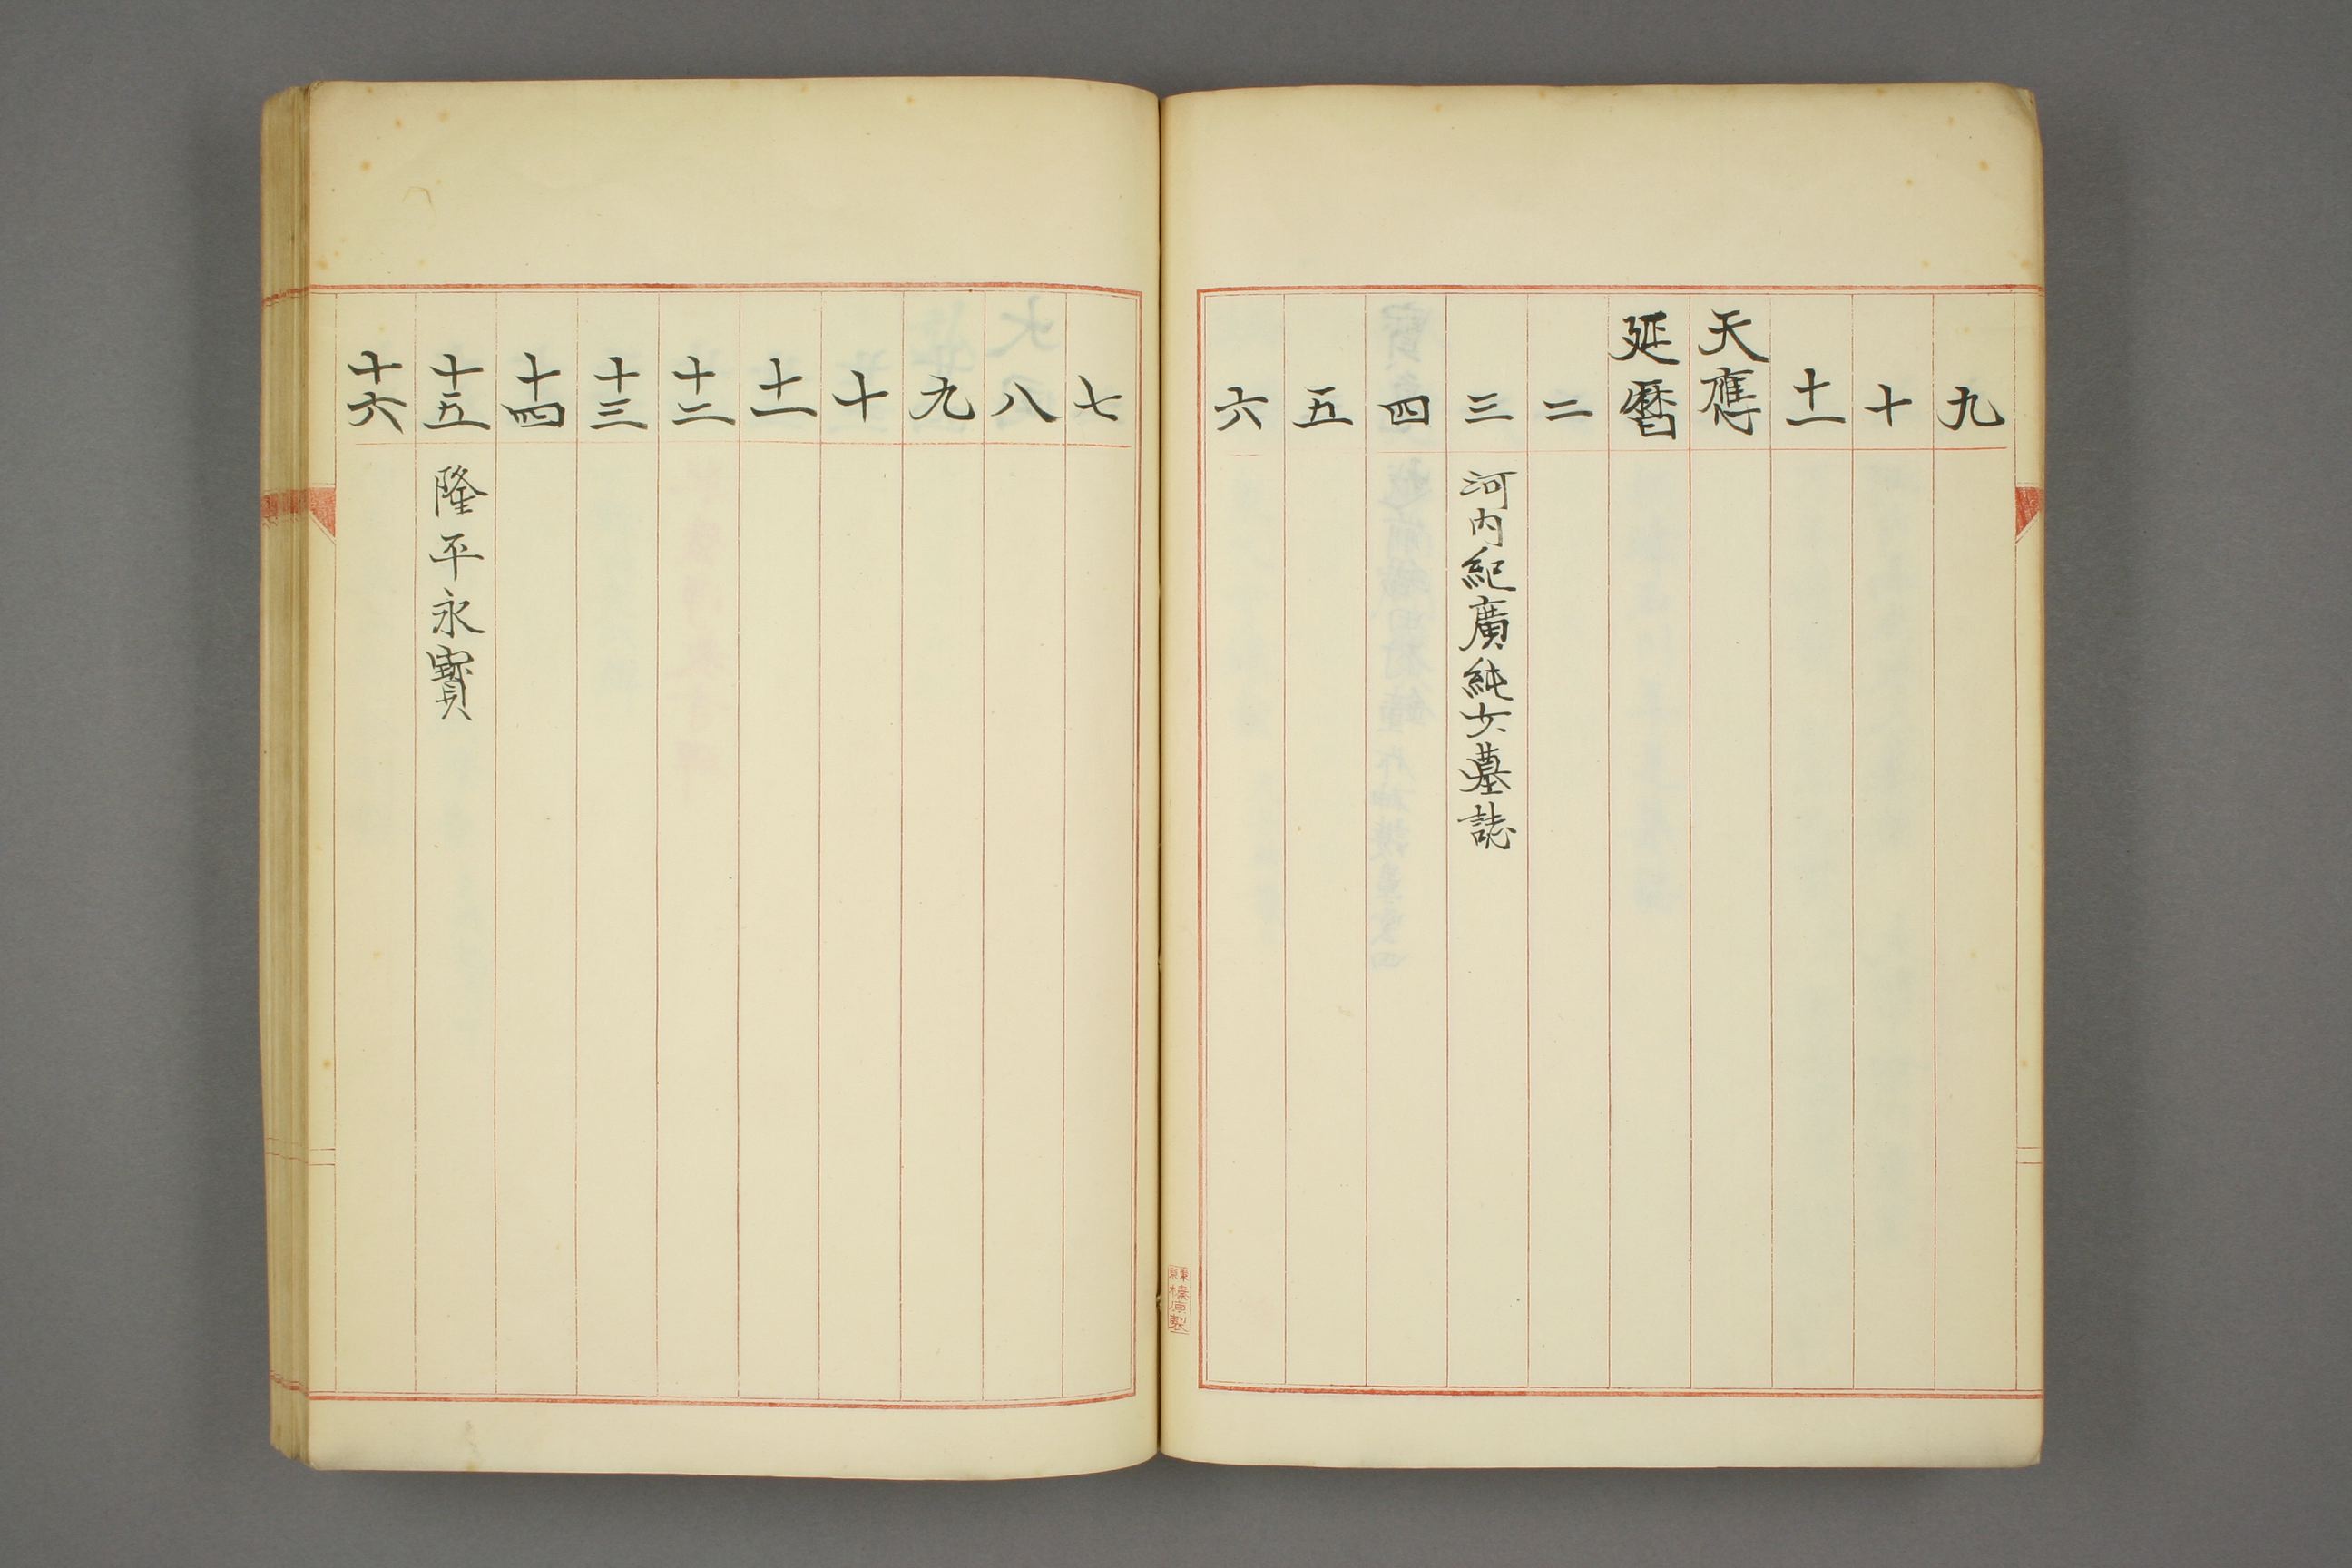 九
十
十一
天應
延曆
二
三 河内紀廣純女墓誌
四
五
六
七
八
九
十
十一
十二
十三
十四
十五 隆平永寳
十六